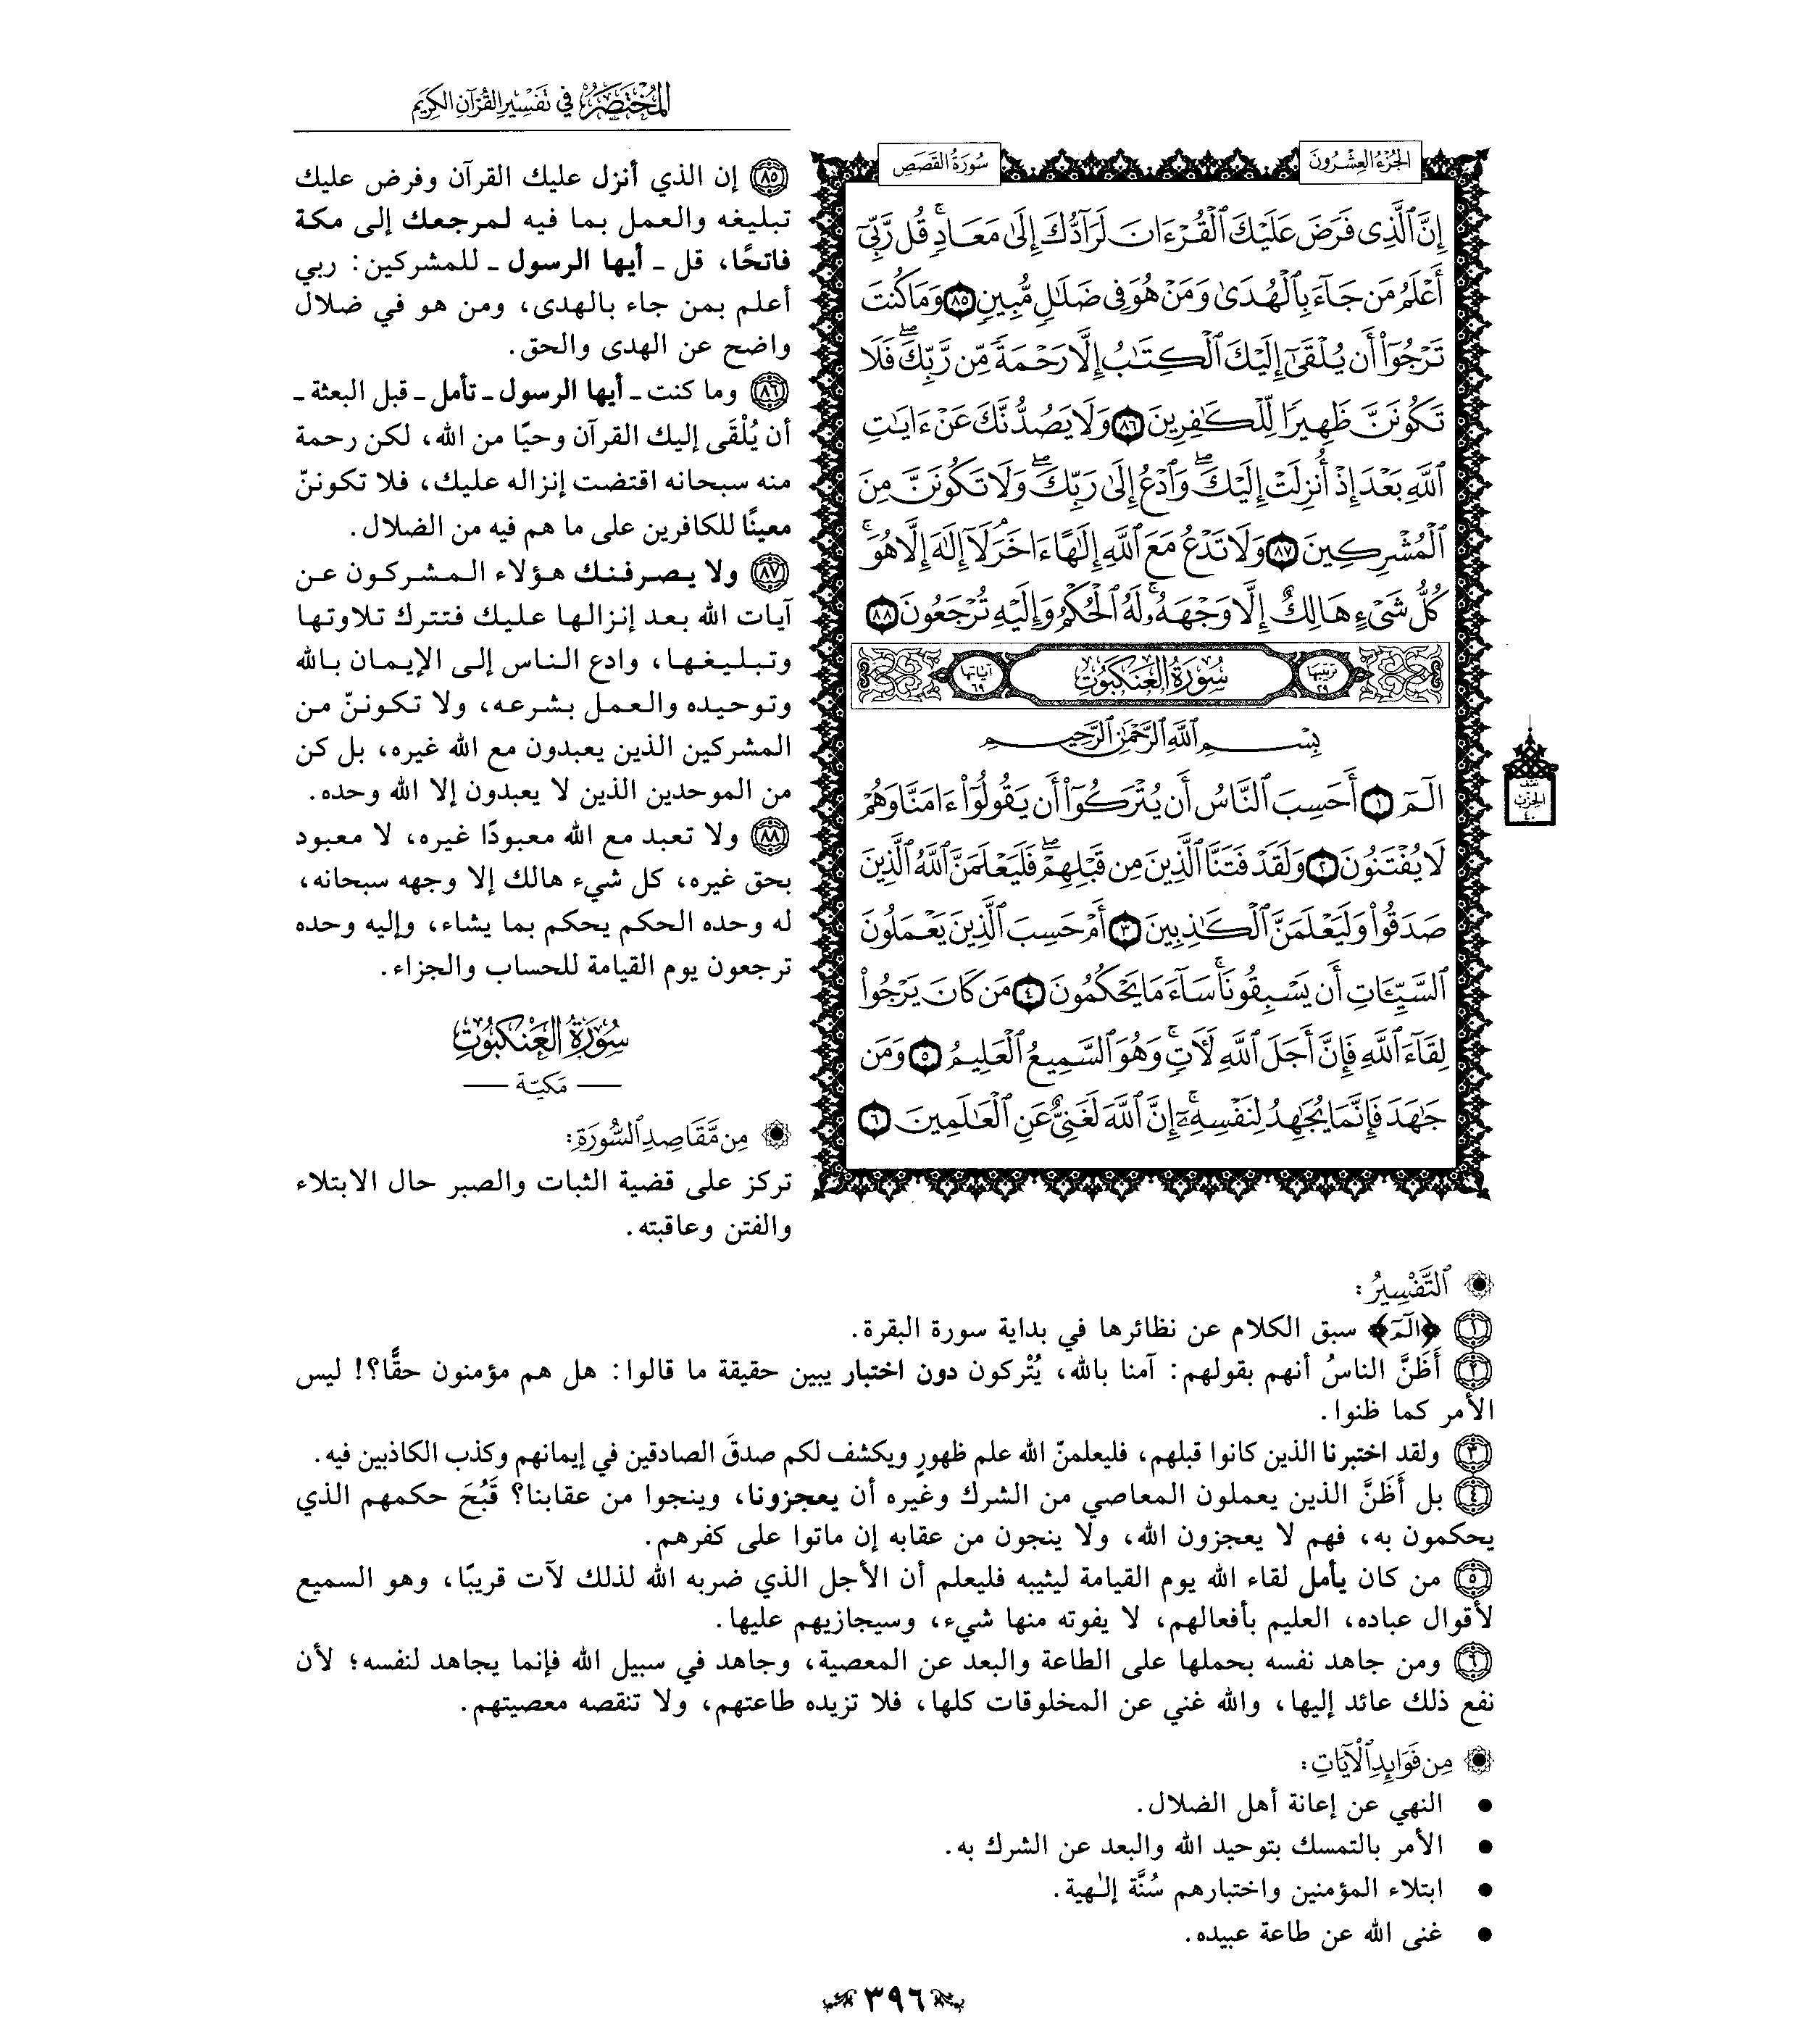 المُخْتَصَرُ فِي تَفْسِيرِ القُرْآنِ الكَرِيمِ
الجُزْءُ العِشْرُونَ
سُورَةُ القَصَصِ
إِنَّ ٱلَّذِى فَرَضَ عَلَيْكَ ٱلْقُرْءَانَ لَرَآدُّكَ إِلَىٰ مَعَادٍۚ قُل رَّبِّىٓ
أَعْلَمُ مَن جَآءَ بِٱلْهُدَىٰ وَمَنْ هُوَ فِى ضَلَٰلٍ مُّبِينٍ ٨٥ وَمَا كُنتَ
تَرْجُوٓا۟ أَن يُلْقَىٰٓ إِلَيْكَ ٱلْكِتَٰبُ إِلَّا رَحْمَةً مِّن رَّبِّكَۖ فَلَا
تَكُونَنَّ ظَهِيرًا لِّلْكَٰفِرِينَ ٨٦ وَلَا يَصُدُّنَّكَ عَنْ ءَايَٰتِ
ٱللَّهِ بَعْدَ إِذْ أُنزِلَتْ إِلَيْكَۖ وَٱدْعُ إِلَىٰ رَبِّكَۖ وَلَا تَكُونَنَّ مِنَ
ٱلْمُشْرِكِينَ ٨٧ وَلَا تَدْعُ مَعَ ٱللَّهِ إِلَٰهًا ءَاخَرَۘ لَآ إِلَٰهَ إِلَّا هُوَۚ
كُلُّ شَىْءٍ هَالِكٌ إِلَّا وَجْهَهُۥۚ لَهُ ٱلْحُكْمُ وَإِلَيْهِ تُرْجَعُونَ ٨٨
ترتيبها ٢٩ سُورَةُ العَنكَبُوتِ آياتها ٦٩
بِسْمِ ٱللَّهِ ٱلرَّحْمَٰنِ ٱلرَّحِيمِ
الٓمٓ ١ أَحَسِبَ ٱلنَّاسُ أَن يُتْرَكُوٓا۟ أَن يَقُولُوٓا۟ ءَامَنَّا وَهُمْ
لَا يُفْتَنُونَ ٢ وَلَقَدْ فَتَنَّا ٱلَّذِينَ مِن قَبْلِهِمْۖ فَلَيَعْلَمَنَّ ٱللَّهُ ٱلَّذِينَ
صَدَقُوا۟ وَلَيَعْلَمَنَّ ٱلْكَٰذِبِينَ ٣ أَمْ حَسِبَ ٱلَّذِينَ يَعْمَلُونَ
ٱلسَّيِّـَٔاتِ أَن يَسْبِقُونَاۚ سَآءَ مَا يَحْكُمُونَ ٤ مَن كَانَ يَرْجُوا۟
لِقَآءَ ٱللَّهِ فَإِنَّ أَجَلَ ٱللَّهِ لَـَٔاتٍۚ وَهُوَ ٱلسَّمِيعُ ٱلْعَلِيمُ ٥ وَمَن
جَٰهَدَ فَإِنَّمَا يُجَٰهِدُ لِنَفْسِهِۦٓۚ إِنَّ ٱللَّهَ لَغَنِىٌّ عَنِ ٱلْعَٰلَمِينَ ٦
نصف الحزب ٤٠
٨٥ إن الذي أنزل عليك القرآن وفرض عليك
تبليغه والعمل بما فيه لمرجعك إلى مكة
فاتحًا، قل ـ أيها الرسول ـ للمشركين: ربي
أعلم بمن جاء بالهدى، ومن هو في ضلال
واضح عن الهدى والحق.
٨٦ وما كنت ـ أيها الرسول ـ تأمل ـ قبل البعثة ـ
أن يُلْقَى إليك القرآن وحيًا من الله، لكن رحمة
منه سبحانه اقتضت إنزاله عليك، فلا تكوننّ
معينًا للكافرين على ما هم فيه من الضلال.
٨٧ ولا يصرفنك هؤلاء المشركون عن
آيات الله بعد إنزالها عليك فتترك تلاوتها
وتبليغها، وادع الناس إلى الإيمان بالله
وتوحيده والعمل بشرعه، ولا تكوننّ من
المشركين الذين يعبدون مع الله غيره، بل كن
من الموحدين الذين لا يعبدون إلا الله وحده.
٨٨ ولا تعبد مع الله معبودًا غيره، لا معبود
بحق غيره، كل شيء هالك إلا وجهه سبحانه،
له وحده الحكم يحكم بما يشاء، وإليه وحده
ترجعون يوم القيامة للحساب والجزاء.
سُورَةُ العَنكَبُوتِ
— مَكيّة —
مِن مَّقَاصِدِ ٱلسُّورَةِ:
تركز على قضية الثبات والصبر حال الابتلاء
والفتن وعاقبته.
ٱلتَّفْسِيرُ:
١ ﴿الٓمٓ﴾ سبق الكلام عن نظائرها في بداية سورة البقرة.
٢ أَظَنَّ الناسُ أنهم بقولهم: آمنا بالله، يُتْركون دون اختبار يبين حقيقة ما قالوا: هل هم مؤمنون حقًّا؟! ليس
الأمر كما ظنوا.
٣ ولقد اختبرنا الذين كانوا قبلهم، فليعلمنّ الله علم ظهورٍ ويكشف لكم صدقَ الصادقين في إيمانهم وكذب الكاذبين فيه.
٤ بل أَظَنَّ الذين يعملون المعاصي من الشرك وغيره أن يعجزونا، وينجوا من عقابنا؟ قَبُحَ حكمهم الذي
يحكمون به، فهم لا يعجزون الله، ولا ينجون من عقابه إن ماتوا على كفرهم.
٥ من كان يأمل لقاء الله يوم القيامة ليثيبه فليعلم أن الأجل الذي ضربه الله لذلك لآت قريبًا، وهو السميع
لأقوال عباده، العليم بأفعالهم، لا يفوته منها شيء، وسيجازيهم عليها.
٦ ومن جاهد نفسه بحملها على الطاعة والبعد عن المعصية، وجاهد في سبيل الله فإنما يجاهد لنفسه؛ لأن
نفع ذلك عائد إليها، والله غني عن المخلوقات كلها، فلا تزيده طاعتهم، ولا تنقصه معصيتهم.
مِن فَوَائِدِ ٱلْآيَاتِ:
● النهي عن إعانة أهل الضلال.
● الأمر بالتمسك بتوحيد الله والبعد عن الشرك به.
● ابتلاء المؤمنين واختبارهم سُنَّة إلٰهية.
● غنى الله عن طاعة عبيده.
٣٩٦